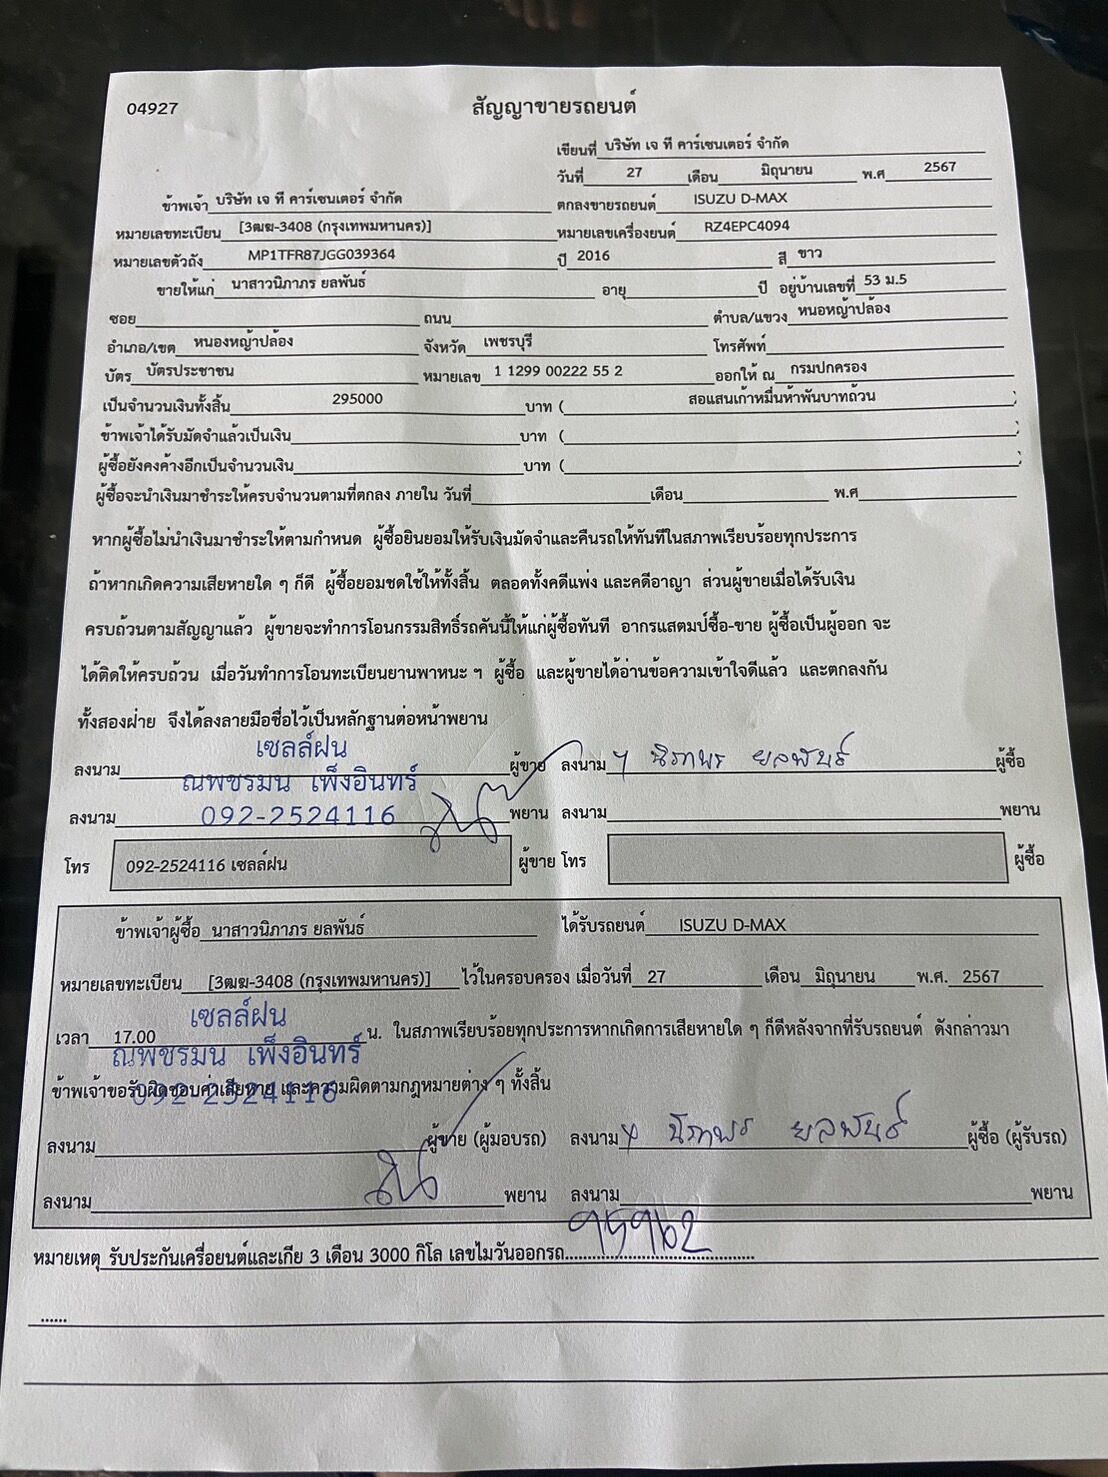 04927
สัญญาขายรถยนต์
เขียนที่ บริษัท เจ ที คาร์เซนเตอร์ จำกัด
วันที่ 27 เดือน มิถุนายน พ.ศ 2567
ข้าพเจ้า บริษัท เจ ที คาร์เซนเตอร์ จำกัด ตกลงขายรถยนต์ ISUZU D-MAX
หมายเลขทะเบียน [3ฒฆ-3408 (กรุงเทพมหานคร)] หมายเลขเครื่องยนต์ RZ4EPC4094
หมายเลขตัวถัง MP1TFR87JGG039364 ปี 2016 สี ขาว
ขายให้แก่ นาสาวนิภาภร ยลพันธ์ อายุ ปี อยู่บ้านเลขที่ 53 ม.5
ซอย ถนน ตำบล/แขวง หนอหญ้าปล้อง
อำเภอ/เขต หนองหญ้าปล้อง จังหวัด เพชรบุรี โทรศัพท์
บัตร บัตรประชาชน หมายเลข 1 1299 00222 55 2 ออกให้ ณ กรมปกครอง
เป็นจำนวนเงินทั้งสิ้น 295000 บาท ( สอแสนเก้าหมื่นห้าพันบาทถ้วน )
ข้าพเจ้าได้รับมัดจำแล้วเป็นเงิน บาท ( )
ผู้ซื้อยังคงค้างอีกเป็นจำนวนเงิน บาท ( )
ผู้ซื้อจะนำเงินมาชำระให้ครบจำนวนตามที่ตกลง ภายใน วันที่ เดือน พ.ศ
หากผู้ซื้อไม่นำเงินมาชำระให้ตามกำหนด ผู้ซื้อยินยอมให้รับเงินมัดจำและคืนรถให้ทันทีในสภาพเรียบร้อยทุกประการ
ถ้าหากเกิดความเสียหายใด ๆ ก็ดี ผู้ซื้อยอมชดใช้ให้ทั้งสิ้น ตลอดทั้งคดีแพ่ง และคดีอาญา ส่วนผู้ขายเมื่อได้รับเงิน
ครบถ้วนตามสัญญาแล้ว ผู้ขายจะทำการโอนกรรมสิทธิ์รถคันนี้ให้แก่ผู้ซื้อทันที อากรแสตมป์ซื้อ-ขาย ผู้ซื้อเป็นผู้ออก จะ
ได้ติดให้ครบถ้วน เมื่อวันทำการโอนทะเบียนยานพาหนะ ฯ ผู้ซื้อ และผู้ขายได้อ่านข้อความเข้าใจดีแล้ว และตกลงกัน
ทั้งสองฝ่าย จึงได้ลงลายมือชื่อไว้เป็นหลักฐานต่อหน้าพยาน
เซลล์ฝน
ลงนาม ผู้ขาย ลงนาม นิภาพร ยลพันธ์ ผู้ซื้อ
ณพชรมน เพ็งอินทร์
ลงนาม 092-2524116 พยาน ลงนาม พยาน
โทร 092-2524116 เซลล์ฝน ผู้ขาย โทร ผู้ซื้อ
ข้าพเจ้าผู้ซื้อ นาสาวนิภาภร ยลพันธ์ ได้รับรถยนต์ ISUZU D-MAX
หมายเลขทะเบียน [3ฒฆ-3408 (กรุงเทพมหานคร)] ไว้ในครอบครอง เมื่อวันที่ 27 เดือน มิถุนายน พ.ศ. 2567
เซลล์ฝน
เวลา 17.00 น. ในสภาพเรียบร้อยทุกประการหากเกิดการเสียหายใด ๆ ก็ดีหลังจากที่รับรถยนต์ ดังกล่าวมา
ณพชรมน เพ็งอินทร์
ข้าพเจ้าขอรับผิดชอบค่าเสียหาย และความผิดตามกฎหมายต่าง ๆ ทั้งสิ้น
092-2524116
ลงนาม ผู้ขาย (ผู้มอบรถ) ลงนาม นิภาพร ยลพันธ์ ผู้ซื้อ (ผู้รับรถ)
ลงนาม พยาน ลงนาม พยาน
หมายเหตุ รับประกันเครื่อยนต์และเกีย 3 เดือน 3000 กิโล เลขไมวันออกรถ..............................
......